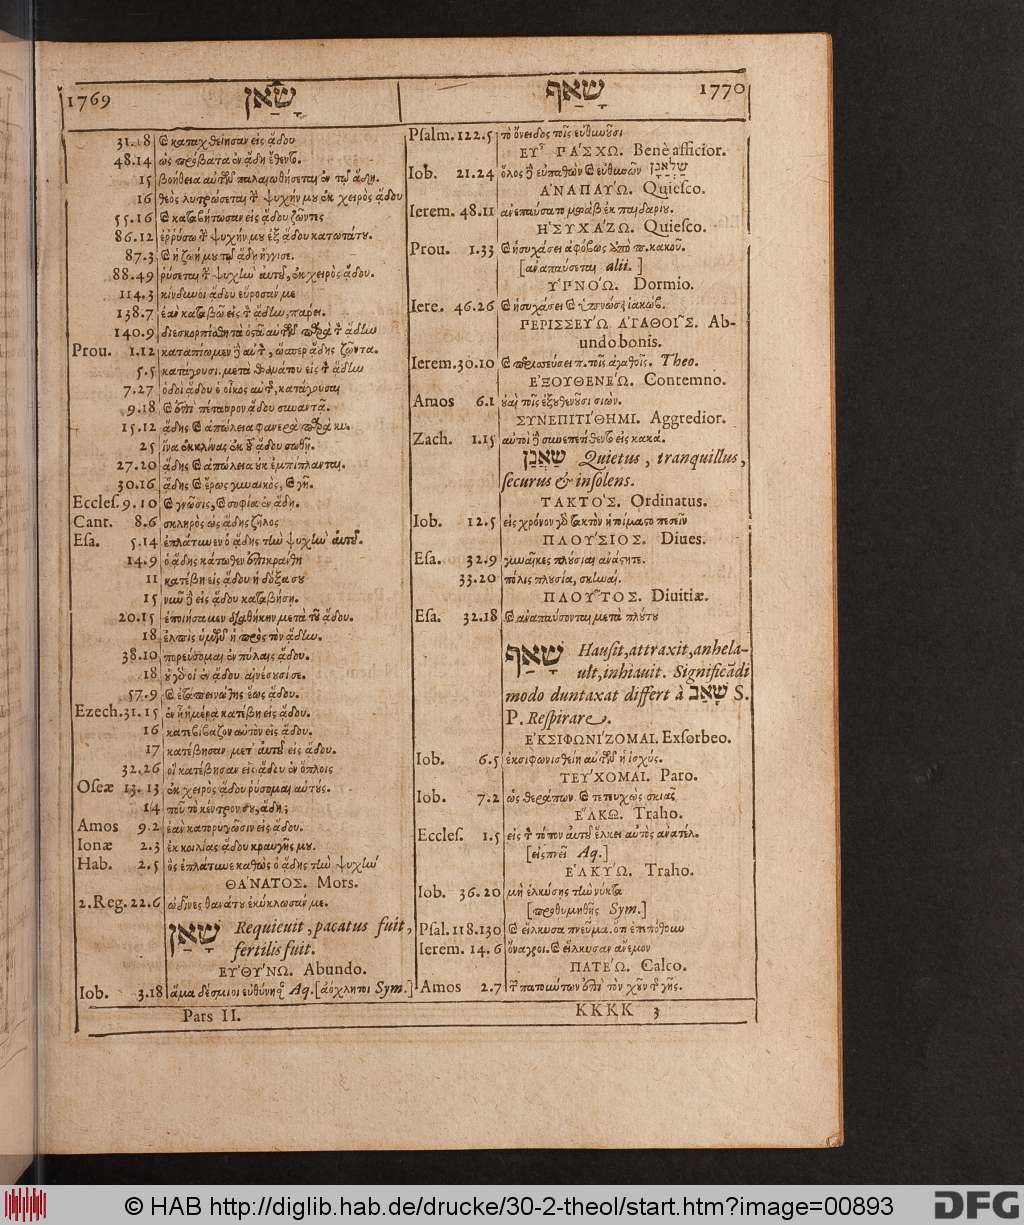 1769 שָׁאַן
31.18 καταχθείησαν εἰς ᾅδου
48.14 ὡς πρόβατα ἐν ᾅδῃ ἔθεντο.
15 βοήθεια αὐτῶν παλαιωθήσεται ἐν τῷ ᾅδῃ.
16 θεὸς λυτρώσεται τὴν ψυχήν μου ἐκ χειρὸς ᾅδου
55.16 καταβήτωσαν εἰς ᾅδου ζῶντες
86.12 ἐρρύσω τὴν ψυχήν μου ἐξ ᾅδου κατωτάτου.
87.3 ἡ ζωή μου τῷ ᾅδῃ ἤγγισε.
88.49 ῥύσεται τὴν ψυχὴν αὐτοῦ, ἐκ χειρὸς ᾅδου.
114.3 κίνδυνοι ᾅδου εὕροσάν με
138.7 ἐὰν καταβῶ εἰς τὸν ᾅδην, πάρει.
140.9 διεσκορπίσθη τὰ ὀστᾶ αὐτῶν παρὰ τὸν ᾅδην
Prou. 1.12 καταπίωμεν δὲ αὐτὸν, ὥσπερ ᾅδης ζῶντα.
5.5 κατάγουσι μετὰ θανάτου εἰς τὸν ᾅδην
7.27 ὁδοὶ ᾅδου ὁ οἶκος αὐτῆς, κατάγουσαι
9.18 ἐπὶ πέταυρον ᾅδου συναντᾷ.
15.12 ᾅδης καὶ ἀπώλεια φανερὰ παρὰ κυ.
25 ἵνα ἐκκλίνας ἐκ τοῦ ᾅδου σωθῇ.
27.20 ᾅδης καὶ ἀπώλεια οὐκ ἐμπίπλανται.
30.16 ᾅδης καὶ ἔρως γυναικὸς, καὶ γῆ.
Eccles. 9.10 καὶ γνῶσις, καὶ σοφία ἐν ᾅδῃ.
Cant. 8.6 σκληρὸς ὡς ᾅδης ζῆλος
Esa. 5.14 ἐπλάτυνεν ὁ ᾅδης τὴν ψυχὴν αὐτοῦ.
14.9 ὁ ᾅδης κάτωθεν ἐπικράνθη
11 κατέβη εἰς ᾅδου ἡ δόξα σου
15 νῦν δὲ εἰς ᾅδου καταβήσῃ.
20.15 ἐποιήσαμεν διαθήκην μετὰ τοῦ ᾅδου.
18 ἐλπὶς ὑμῶν ἡ πρὸς τὸν ᾅδην.
38.10 πορεύσομαι ἐν πύλαις ᾅδου.
18 οὐ γὰρ οἱ ἐν ᾅδου αἰνέσουσί σε.
57.9 καὶ ἐταπεινώθης ἕως ᾅδου.
Ezech. 31.15 ἐν ᾗ ἡμέρᾳ κατέβη εἰς ᾅδου.
16 κατεβίβαζον αὐτὸν εἰς ᾅδου.
17 κατέβησαν μετ' αὐτοῦ εἰς ᾅδου.
32.26 οἳ κατέβησαν εἰς ᾅδου ἐν ὅπλοις
Oseæ 13.13 ἐκ χειρὸς ᾅδου ῥύσομαι αὐτούς.
14 ποῦ τὸ κέντρον σου, ᾅδη;
Amos 9.2 ἐὰν κατορυγῶσιν εἰς ᾅδου.
Ionæ 2.3 ἐκ κοιλίας ᾅδου κραυγῆς μου.
Hab. 2.5 ὃς ἐπλάτυνε καθὼς ὁ ᾅδης τὴν ψυχὴν
ΘΑ'ΝΑΤΟΣ. Mors.
2.Reg. 22.6 ὠδῖνες θανάτου ἐκύκλωσάν με.
שָׁאַן Requieuit, pacatus fuit,
fertilis fuit.
ΕΥ'ΘΥ'ΝΩ. Abundo.
Iob. 3.18 ἅμα δέσμιοι εὐθύνησαν Aq. [ἀόχλητοι Sym.]
Pars II.
שָׁאַף 1770
Psalm. 122.5 τὸ ὄνειδος τοῖς εὐθηνοῦσι
ΕΥ~ ΠΑ'ΣΧΩ. Benè afficior.
Iob. 21.24 ὅλος δὲ εὐπαθῶν καὶ εὐθηνῶν שַׁלְאֲנָן
Α'ΝΑΠΑΥ'Ω. Quiesco.
Ierem. 48.11 ἀνεπαύσατο μωὰβ ἐκ παιδαρίου.
Η'ΣΥΧΑ'ΖΩ. Quiesco.
Prou. 1.33 καὶ ἡσυχάσει ἀφόβως ἀπὸ π. κακοῦ.
[ἀναπαύσεται alii.]
Υ'ΠΝΟ'Ω. Dormio.
Iere. 46.26 καὶ ἡσυχάσει καὶ ὑπνώσει ἰακώβ.
ΠΕΡΙΣΣΕΥ'Ω Α'ΓΑΘΟΙ~Σ. Ab-
undo bonis.
Ierem. 30.10 καὶ περισσεύσει π. τοῖς ἀγαθοῖς. Theo.
Ε'ΞΟΥΘΕΝΕ'Ω. Contemno.
Amos 6.1 οὐαὶ τοῖς ἐξουθενοῦσι σιών.
ΣΥΝΕΠΙΤΙ'ΘΗΜΙ. Aggredior.
Zach. 1.15 αὐτοὶ δὲ συνεπέθεντο εἰς κακά.
שַׁאֲנָן Quietus, tranquillus,
securus & insolens.
ΤΑΚΤΟ'Σ. Ordinatus.
Iob. 12.5 εἰς χρόνον γὰρ τακτὸν ἡτοίμαστο πεσεῖν
ΠΛΟΥ'ΣΙΟΣ. Diues.
Esa. 32.9 γυναῖκες πλούσιαι ἀνάστητε.
33.20 πόλις πλουσία, σκηναί.
ΠΛΟΥ~ΤΟΣ. Diuitiæ.
Esa. 32.18 καὶ ἀναπαύσονται μετὰ πλούτου
שָׁאַף Hausit, attraxit, anhela-
uit, inhiauit. Significādi
modo duntaxat differt à שָׁאַב S.
P. Respirare.
Ε'ΚΣΙΦΩΝΙ'ΖΟΜΑΙ. Exsorbeo.
Iob. 6.5 ἐκσιφωνισθείη αὐτῶν ἡ ἰσχύς.
ΤΕΥ'ΧΟΜΑΙ. Paro.
Iob. 7.2 ὡς θεράπων. καὶ τετευχὼς σκιᾶς
Ε"ΛΚΩ. Traho.
Eccles. 1.5 εἰς τὸν τόπον αὐτοῦ ἕλκει αὐτὸς ἀνατέλ.
[εἰσπνεῖ Aq.]
Ε'ΛΚΥ'Ω. Traho.
Iob. 36.20 μὴ ἑλκύσῃς τὴν νύκτα
[προθυμηθῇς Sym.]
Psal. 118.130 καὶ εἵλκυσα πνεῦμα. ὅτι ἐπεπόθουν
Ierem. 14.6 ὄναγροι. καὶ εἵλκυσαν ἄνεμον
ΠΑΤΕ'Ω. Calco.
Amos 2.7 τῶν πατούντων ἐπὶ τὸν χοῦν τῆς γῆς.
KKKK 3
© HAB http://diglib.hab.de/drucke/30-2-theol/start.htm?image=00893
DFG